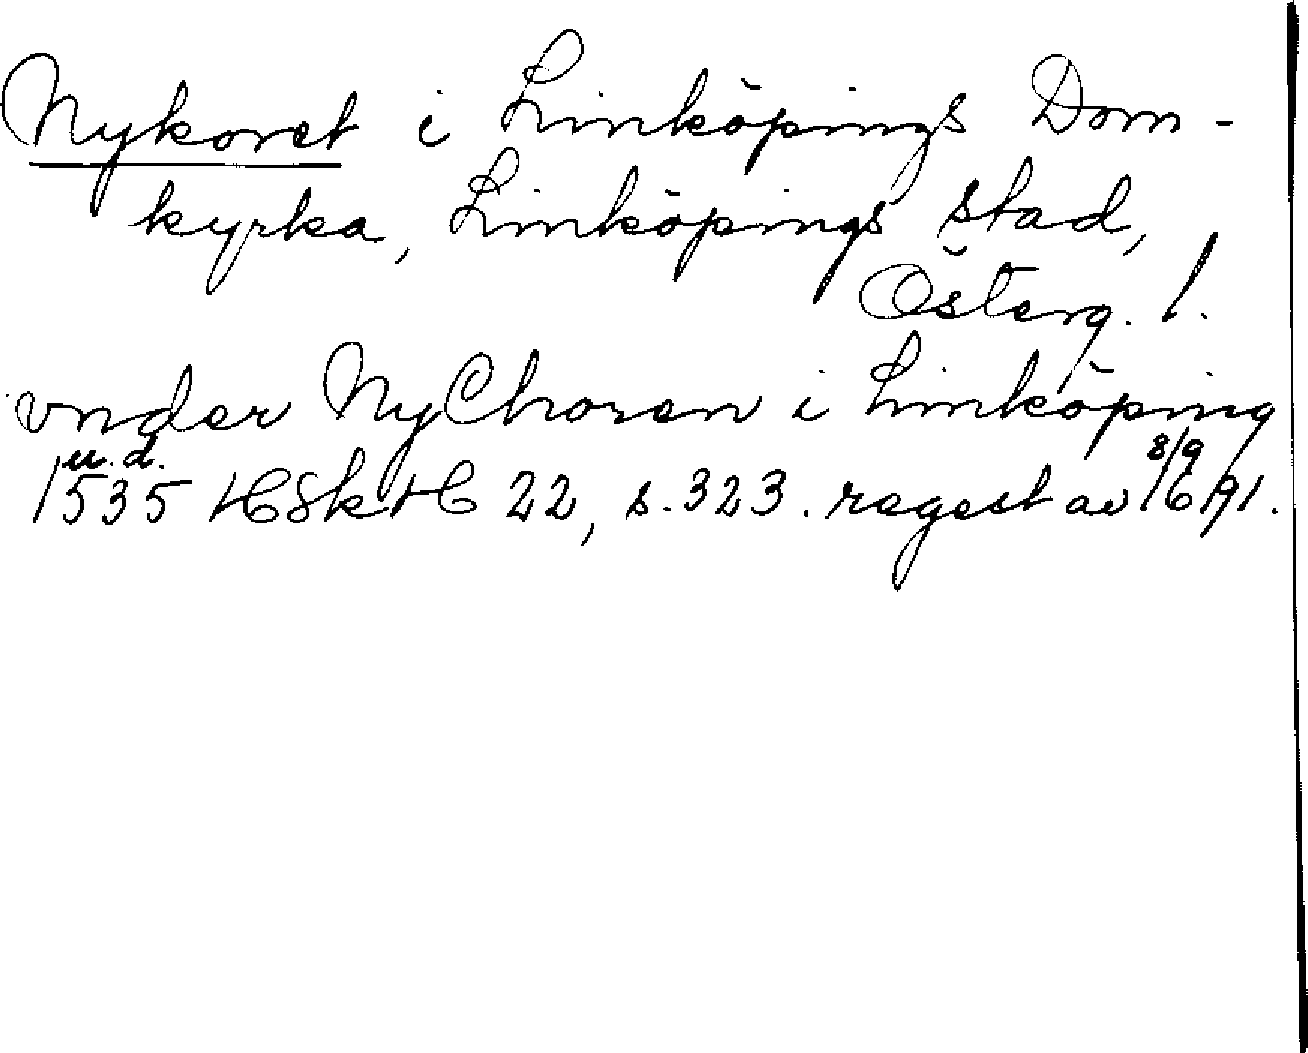 Nykoret i Linköpings Dom-
kyrka, Linköpings stad,
Österg. l.
vnder NyChoren i Linköping
1535 u.d. HSkH 22, s. 323. regest av 8/9 1691.